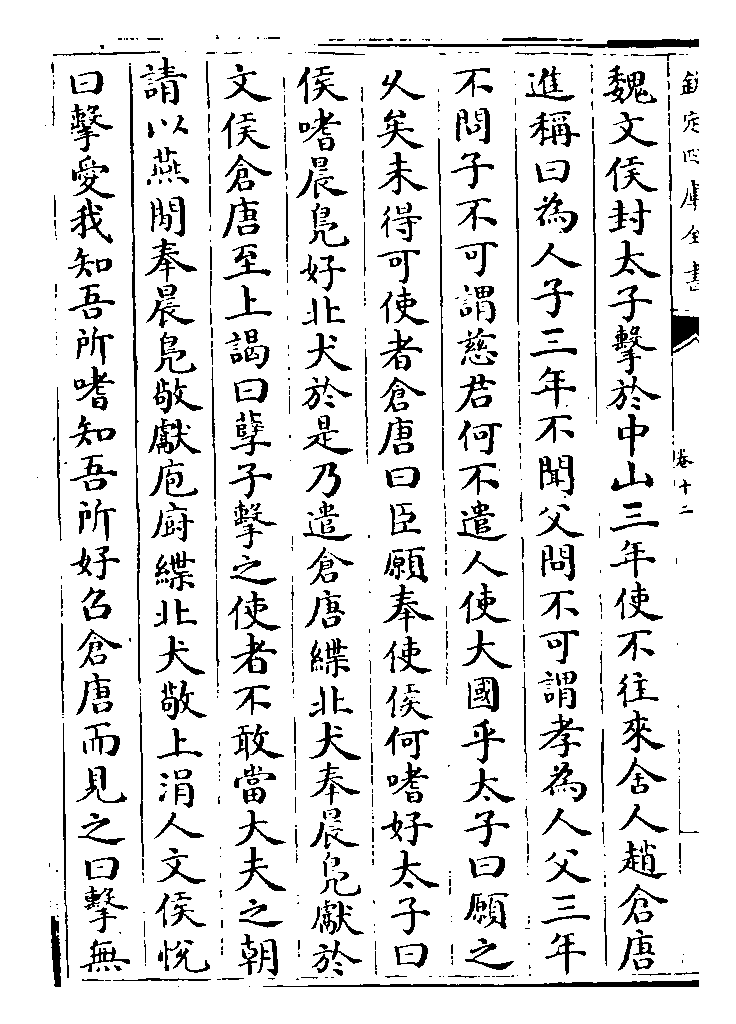 欽定四庫全書
卷十二
魏文侯封太子擊於中山三年使不往來舍人趙倉唐
進稱曰為人子三年不聞父問不可謂孝為人父三年
不問子不可謂慈君何不遣人使大國乎太子曰願之
乆矣未得可使者倉唐曰臣願奉使侯何嗜好太子曰
侯嗜晨鳬好北犬於是乃遣倉唐緤北犬奉晨鳬獻於
文侯倉唐至上謁曰孽子擊之使者不敢當大夫之朝
請以燕閒奉晨鳬敬獻庖廚緤北犬敬上涓人文侯悅
曰擊愛我知吾所嗜知吾所好召倉唐而見之曰擊無